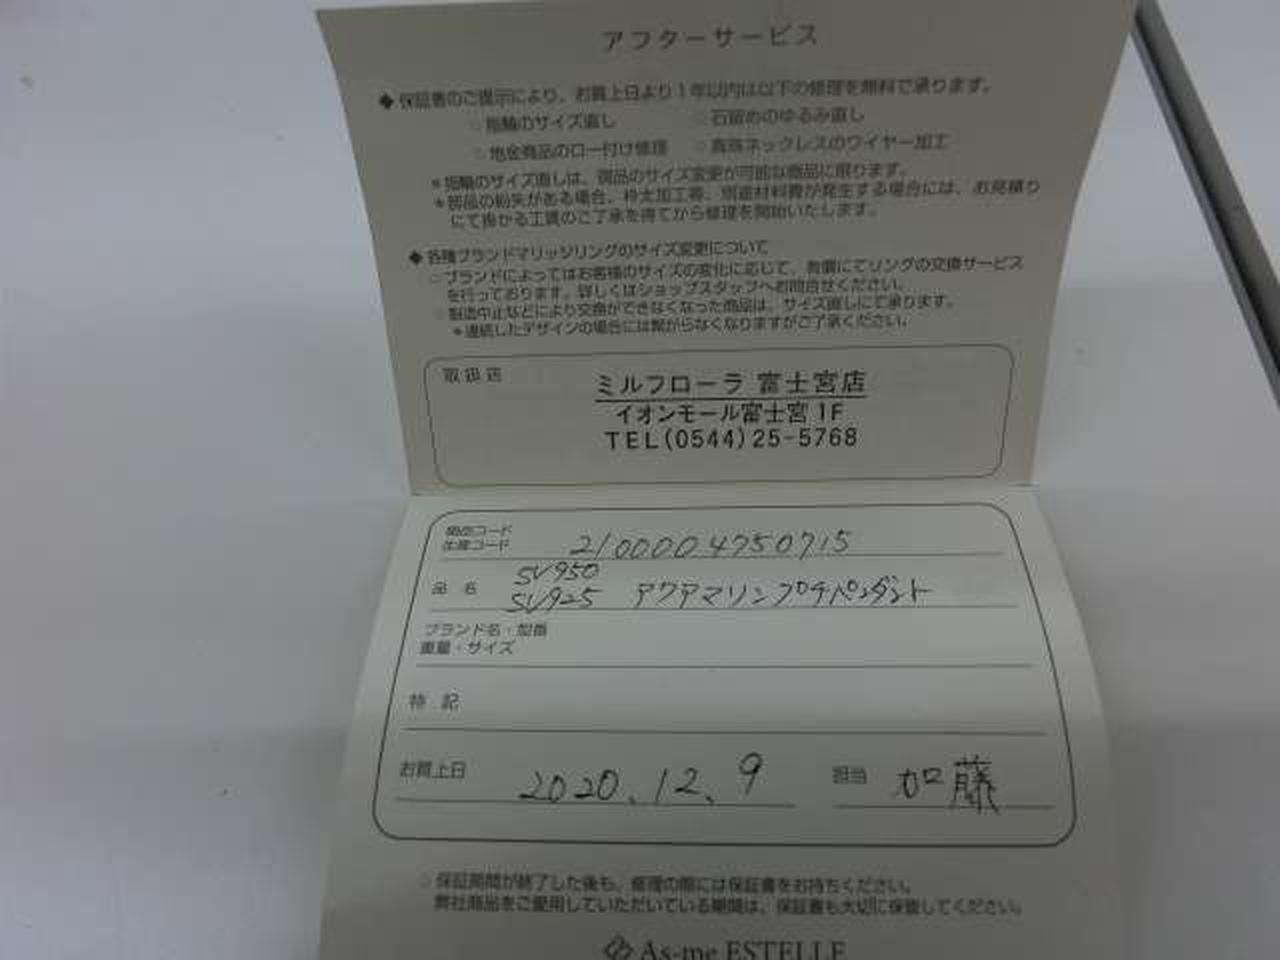 アフターサービス
◆ 保証書のご提示により、お買上日より1年以内は以下の修理を無料で承ります。
○指輪のサイズ直し ○石留めのゆるみ直し
○地金商品のロー付け修理 ○真珠ネックレスのワイヤー加工
*指輪のサイズ直しは、部品のサイズ変更が可能な商品に限ります。
*部品の紛失がある場合、枠太加工等、別途材料費が発生する場合には、お見積り
にて掛かる工賃のご了承を得てから修理を開始いたします。
◆ 各種ブランドマリッジリングのサイズ変更について
○ブランドによってはお客様のサイズの変化に応じて、有償にてリングの交換サービス
を行っております。詳しくはショップスタッフへお問合せください。
○製造中止などにより交換ができなくなった商品は、サイズ直しにて承ります。
*連続したデザインの場合には繋がらなくなりますがご了承ください。
取扱店
ミルフローラ 富士宮店
イオンモール富士宮 1F
TEL(0544)25-5768
商品コード
生産コード 2100004750715
SV950
品名 SV925 アクアマリンプチペンダント
ブランド名・型番
重量・サイズ
特記
お買上日 2020.12.9 担当 加藤
○保証期間が終了した後も、修理の際には保証書をお持ちください。
弊社商品をご愛用していただいている期間は、保証書も大切に保管してください。
As-me ESTELLE